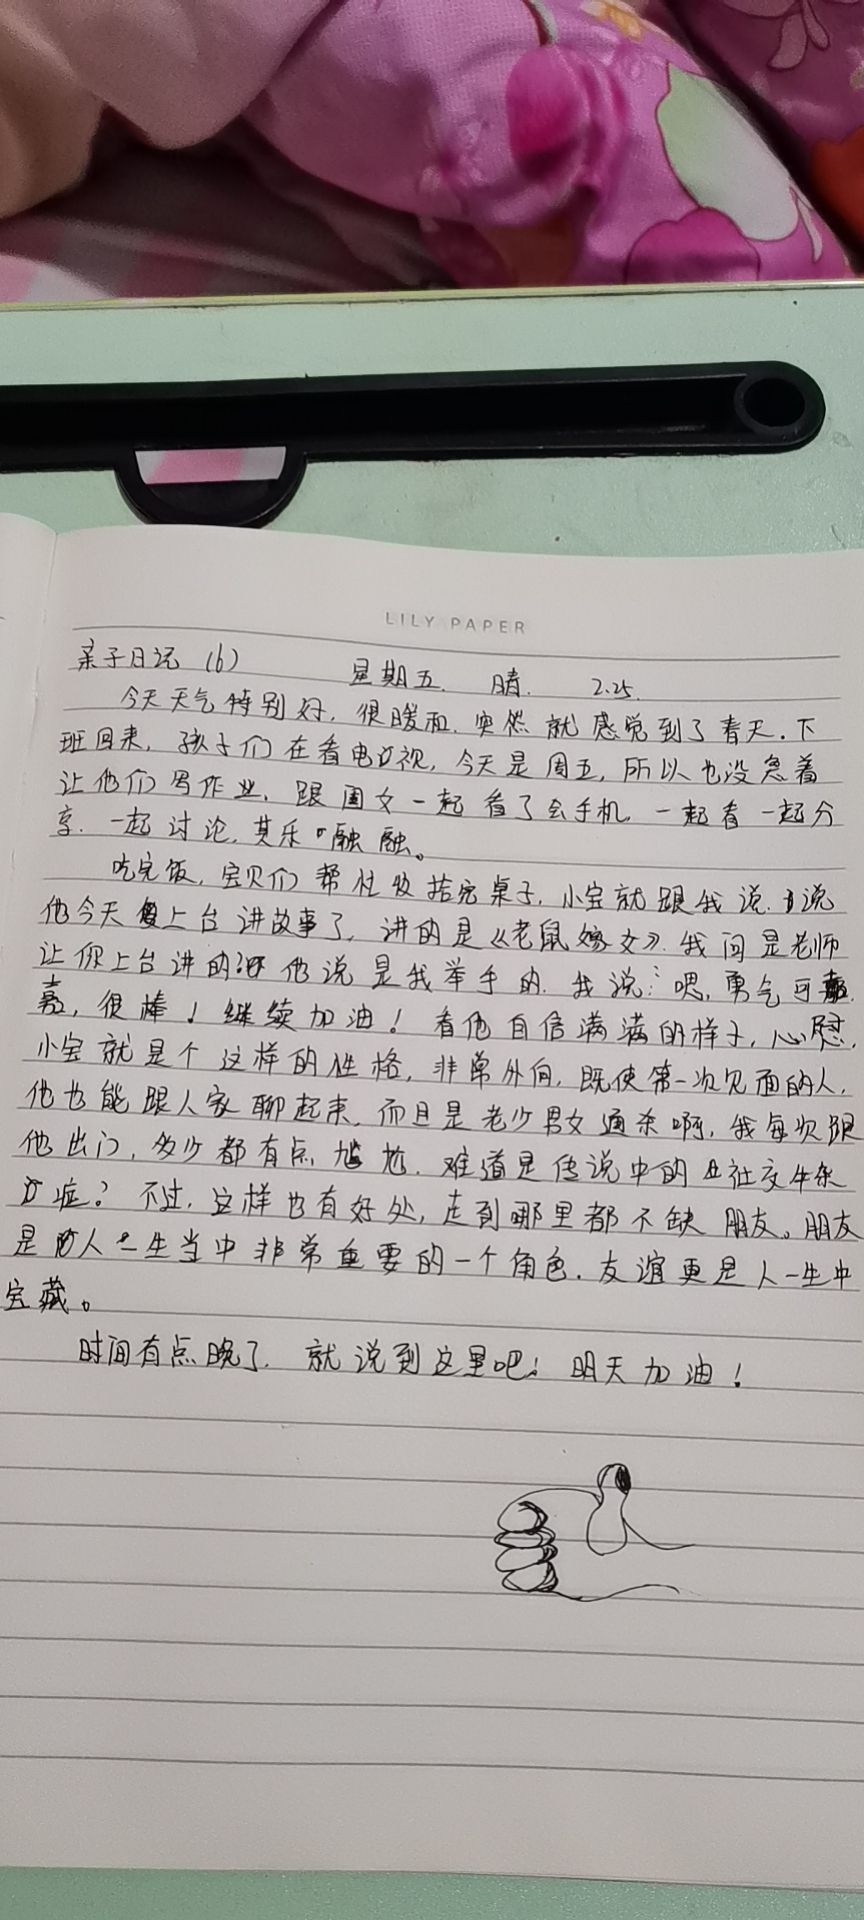 LILY PAPER
亲子日记 (6) 星期五. 晴. 2.25.
今天天气特别好,很暖和.突然就感觉到了春天.下
班回来,孩子们在看电视,今天是周五,所以也没急着
让他们写作业,跟周文一起看了会手机,一起看一起分
享.一起讨论,其乐融融。
吃完饭,宝贝们帮忙收拾完桌子,小宝就跟我说.说
他今天上台讲故事了,讲的是《老鼠嫁女》.我问是老师
让你上台讲的?他说是我举手的.我说:嗯,勇气可
嘉,很棒!继续加油!看他自信满满的样子,心慰,
小宝就是个这样的性格,非常外向,既使第一次见面的人,
他也能跟人家聊起来,而且是老少男女通杀啊,我每次跟
他出门,多少都有点尴尬.难道是传说中的社交牛杂
症?不过,这样也有好处,走到哪里都不缺朋友。朋友
是人一生当中非常重要的一个角色.友谊更是人一生中
宝藏。
时间有点晚了.就说到这里吧!明天加油!